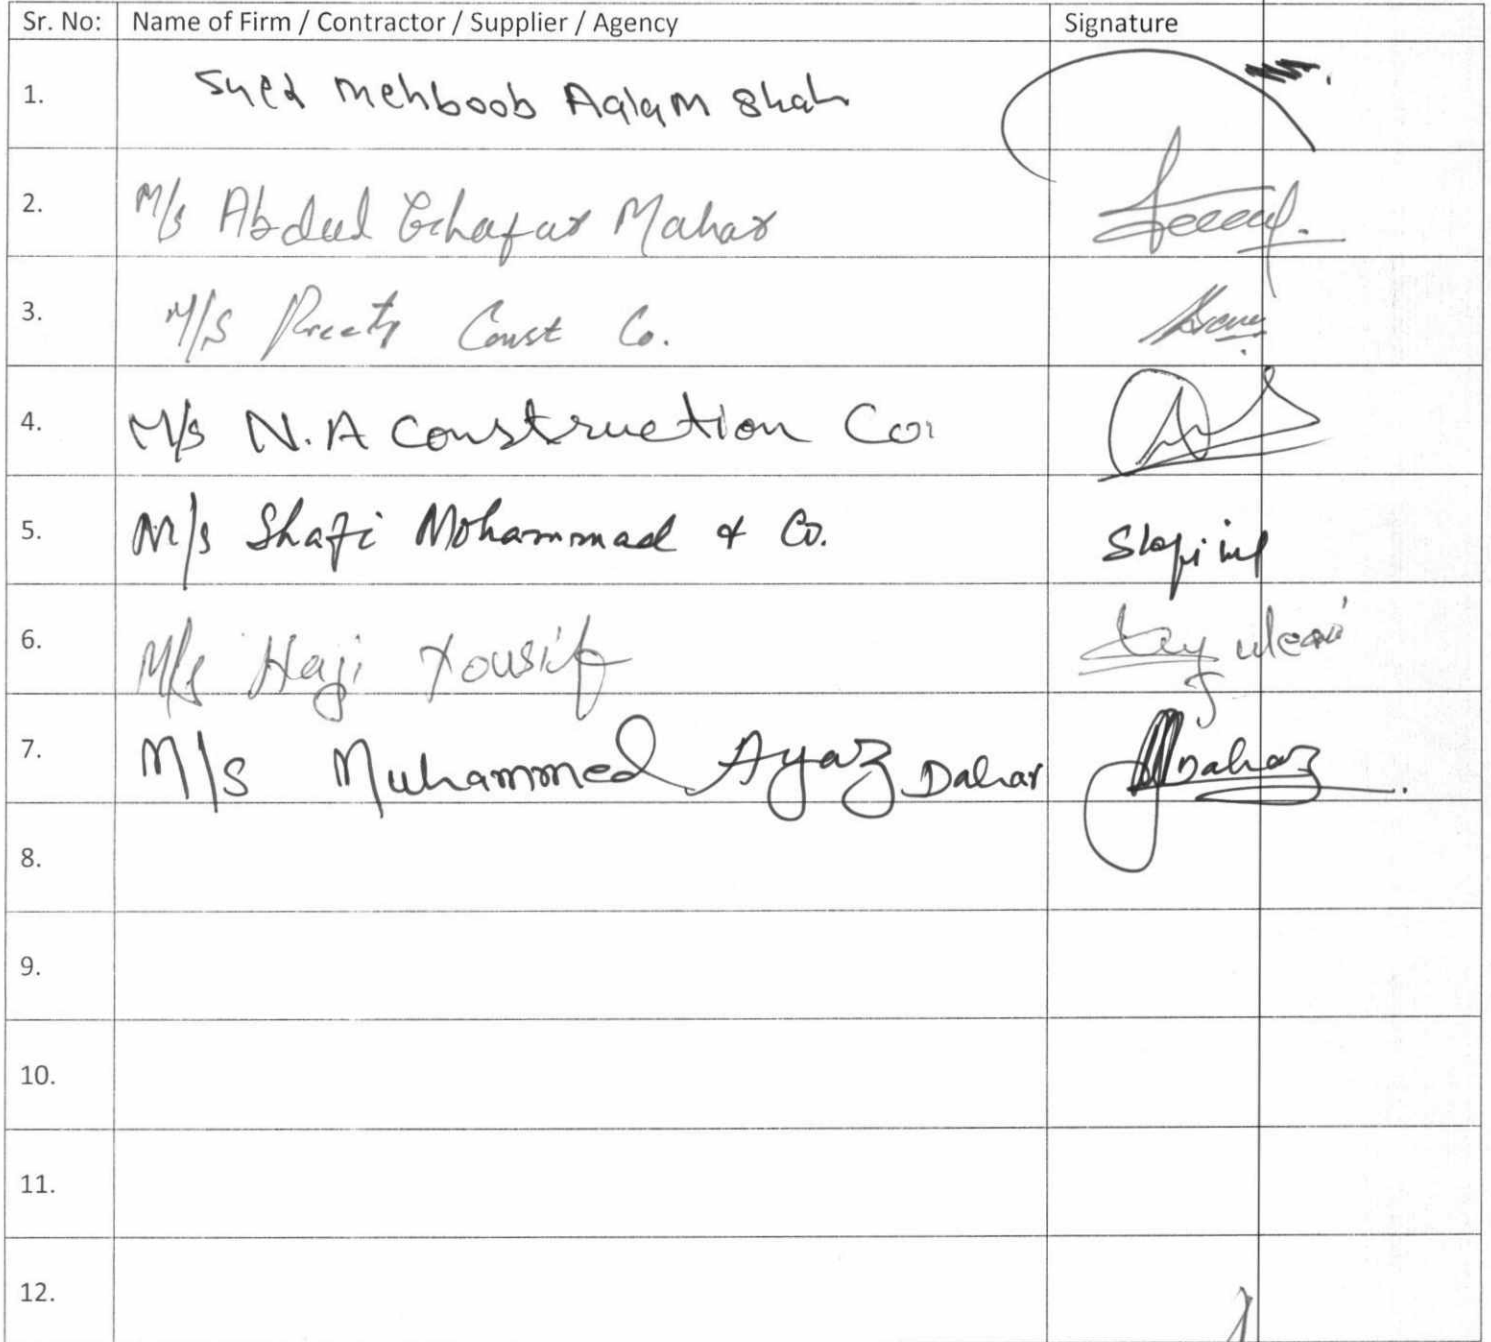 Sr. No: Name of Firm / Contractor / Supplier / Agency Signature
1. Syed Mehboob Aalam Shah
2. M/s Abdul Ghafar Mahar
3. M/S Preety Const Co.
4. M/s N.A Construction Co.
5. M/s Shafi Mohammad & Co.
6. M/s Haji Yousif
7. M/s Muhammed Ayaz Dahar
8.
9.
10.
11.
12.